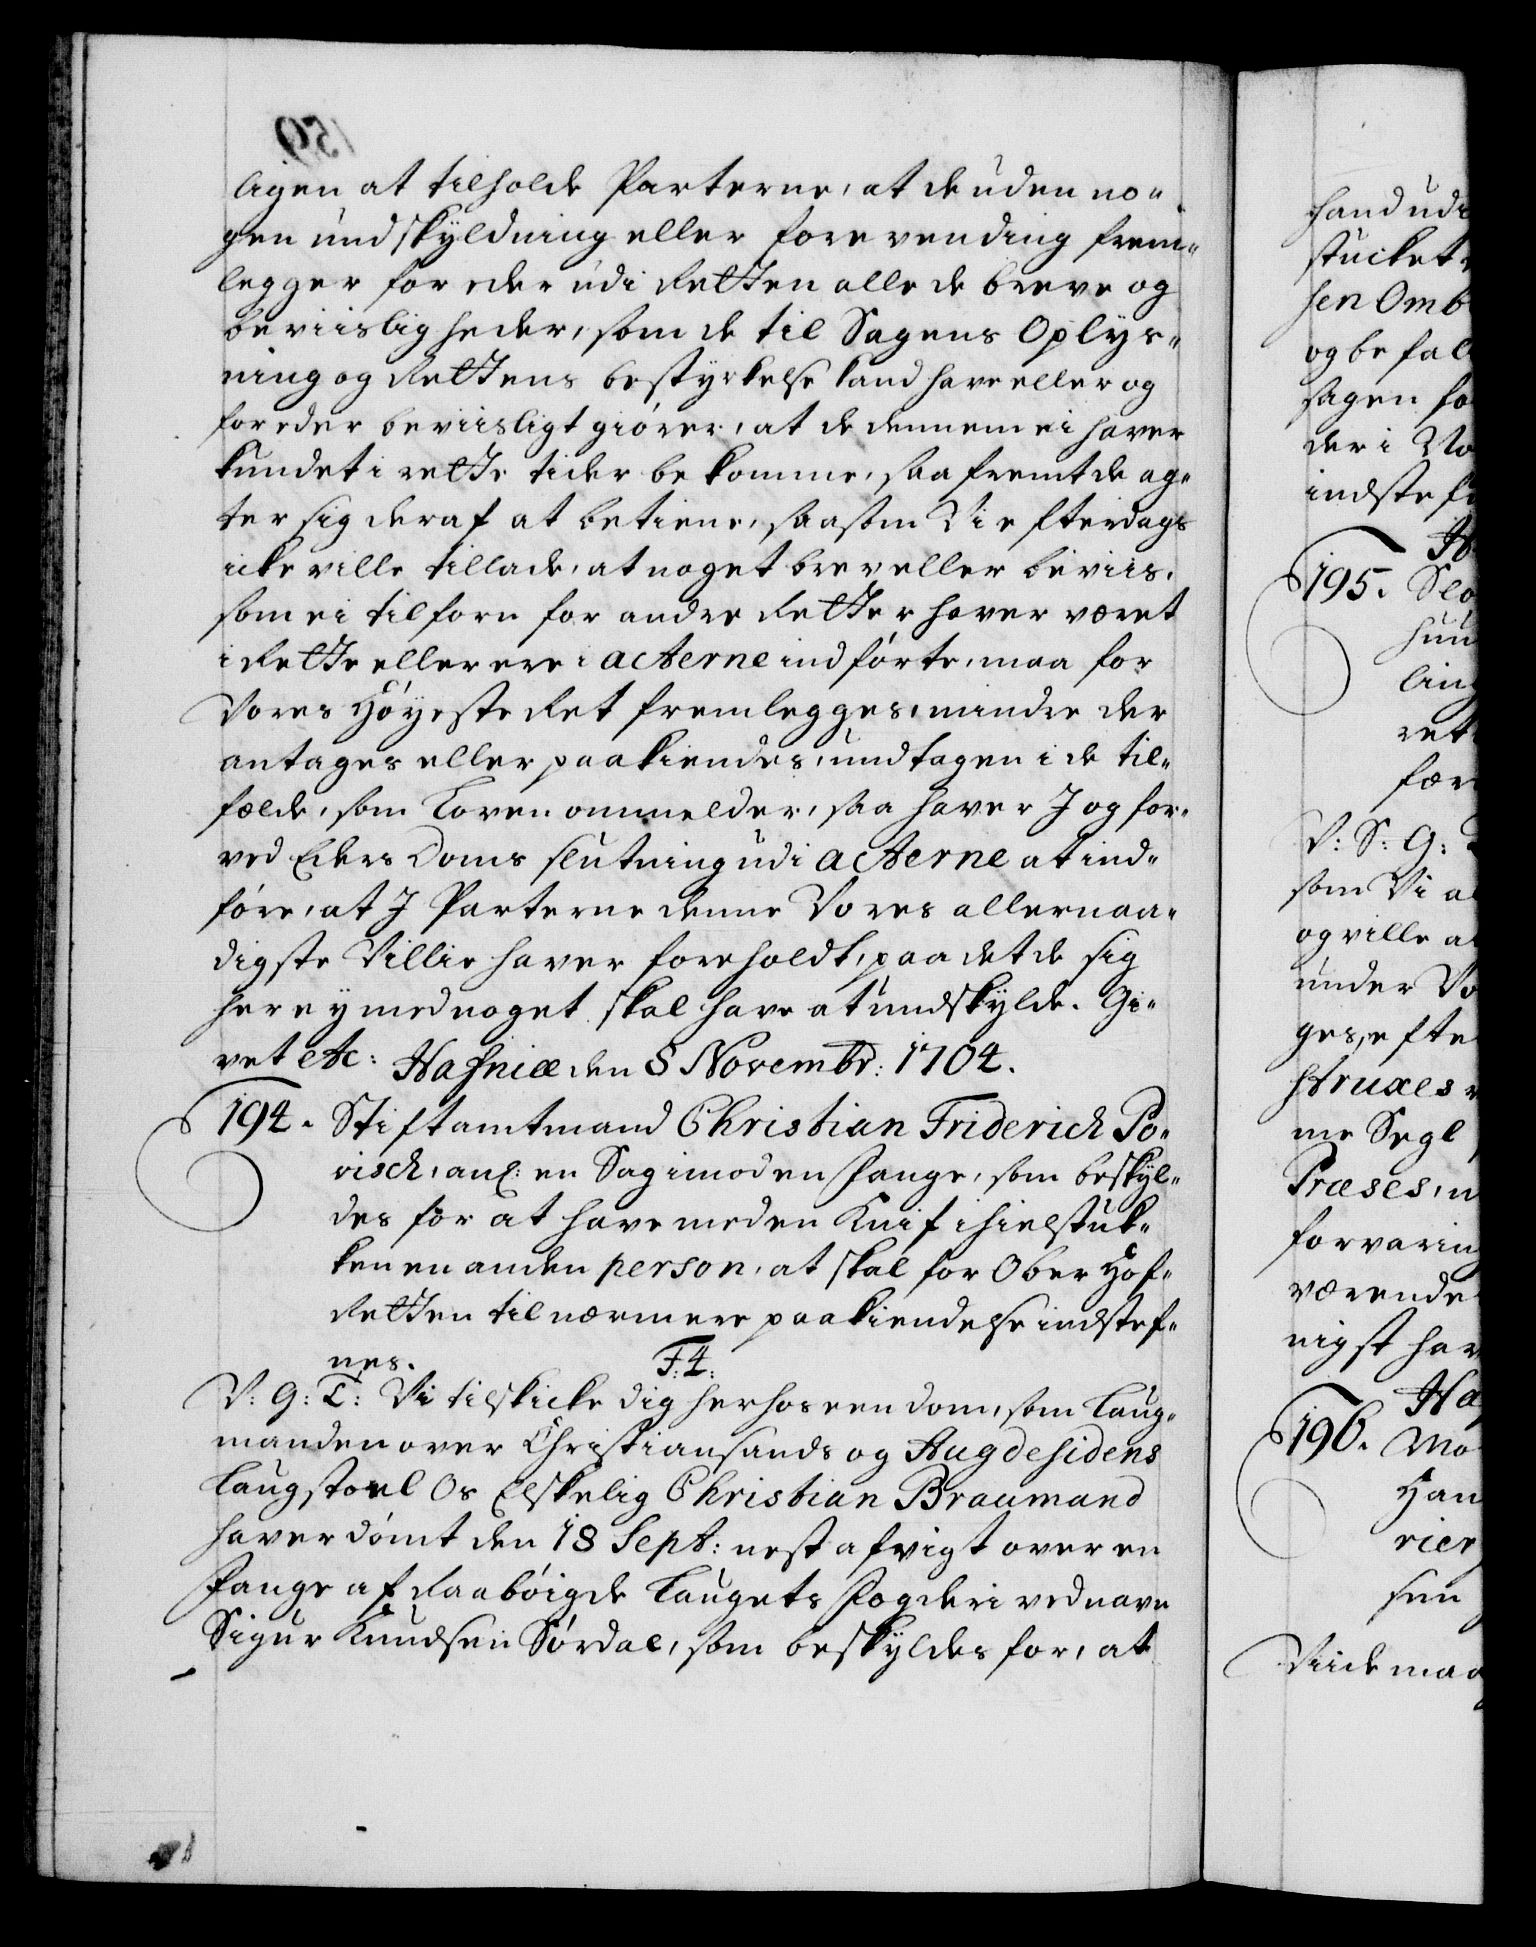 ligen at tilholde Parterne, at de uden no-
gen undskyldning eller forevending frem-
legger for eder udi Retten alle de breve og
beviisligheder, som de til Sagens Oplys-
ning og Rettens bestyrkelse kand have eller og
for eder beviisligt giører, at de dennem ei haver
kundet i rette tider bekomme, saafremt de ag-
ter sig deraf at betiene, saasom Vi efterdags
icke ville tillade, at noget brev eller beviis,
som ei tilforn for andre Retter haver været
i Rette eller ere i acterne indførte, maa for
Vores Høyeste Ret fremlegges, mindre der
antages eller paakiendes, undtagen i de til-
fælde, som Loven ommelder, saa haver J og for-
ved Eders Doms slutning udi acterne at ind-
føre, at J Parterne denne Vores allernaa-
digste Villie haver foreholdt, paa det de sig
her ey med noget skal have at undskylde. Gi-
vet etc: Hafniæ den 8 Novembr: 1704.
194. Stiftamtmand Christian Friderich Po-
visch, anl: en Sag imod en Fange, som beskyl-
des for at have med en Knif ihielstuk-
ken en anden person, at skal for Ober Hof-
Retten til nærmere paakiendelse indstef-
nes. F: 4:
V: G: T: Vi tilskicke dig herhos een dom, som Laug-
manden over Christiansands og Augdesidens
Laugstoel Os Elskelig Christian Braumand
haver dømt den 18 Sept: nest afvigt over en
Fange af Raabøigde Laugets Fogderi ved navn
Sigur Knudsen Sørdal, som beskyldes for, at
hand udi
stucket
sen Omb
og befal
sagen fo
der i No
indstef
195. Slo
huu
ling
ret
fær
V: S: G:
som Vi a
og ville a
under Vo
ges, efte
struxes
me Segl
Præses, n
forvaring
værende
nigst hav
Ha
196. Mo
Han
rier
sen
Viide maa